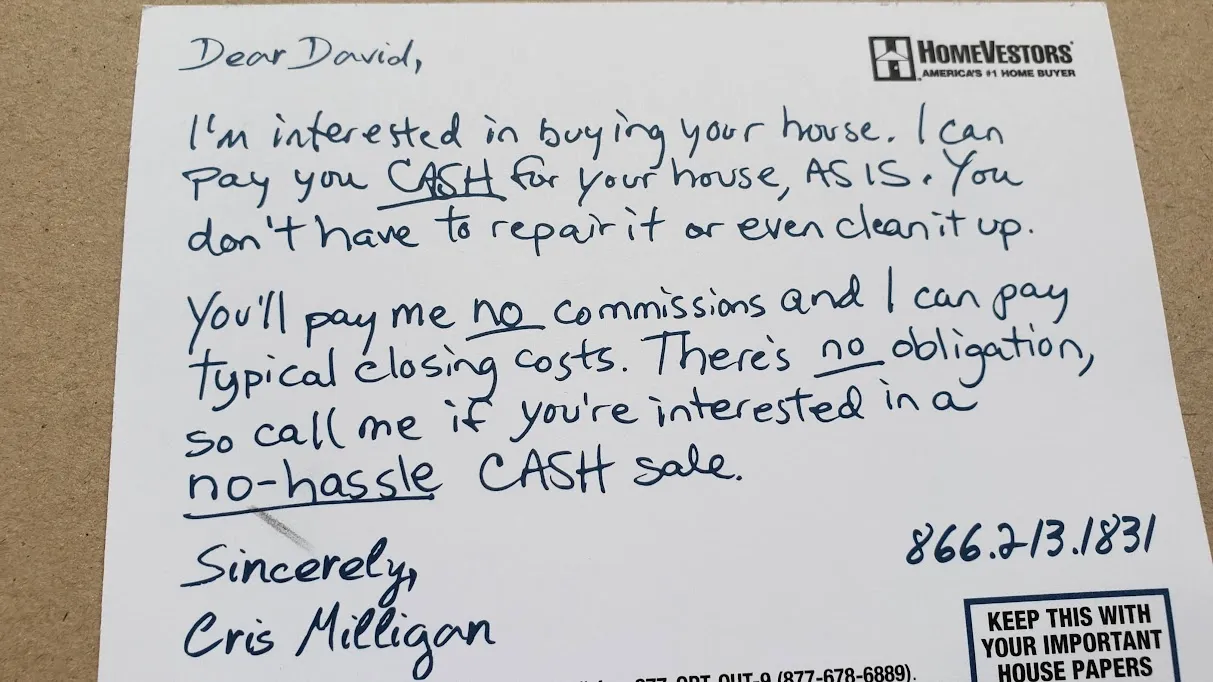 Dear David,
HOMEVESTORS®
AMERICA'S #1 HOME BUYER
I'm interested in buying your house. I can
pay you CASH for your house, AS IS. You
don't have to repair it or even clean it up.
You'll pay me no commissions and I can pay
typical closing costs. There's no obligation,
so call me if you're interested in a
no-hassle CASH sale.
866.213.1831
Sincerely,
Cris Milligan
KEEP THIS WITH
YOUR IMPORTANT
HOUSE PAPERS
877-OPT-OUT-9 (877-678-6889).